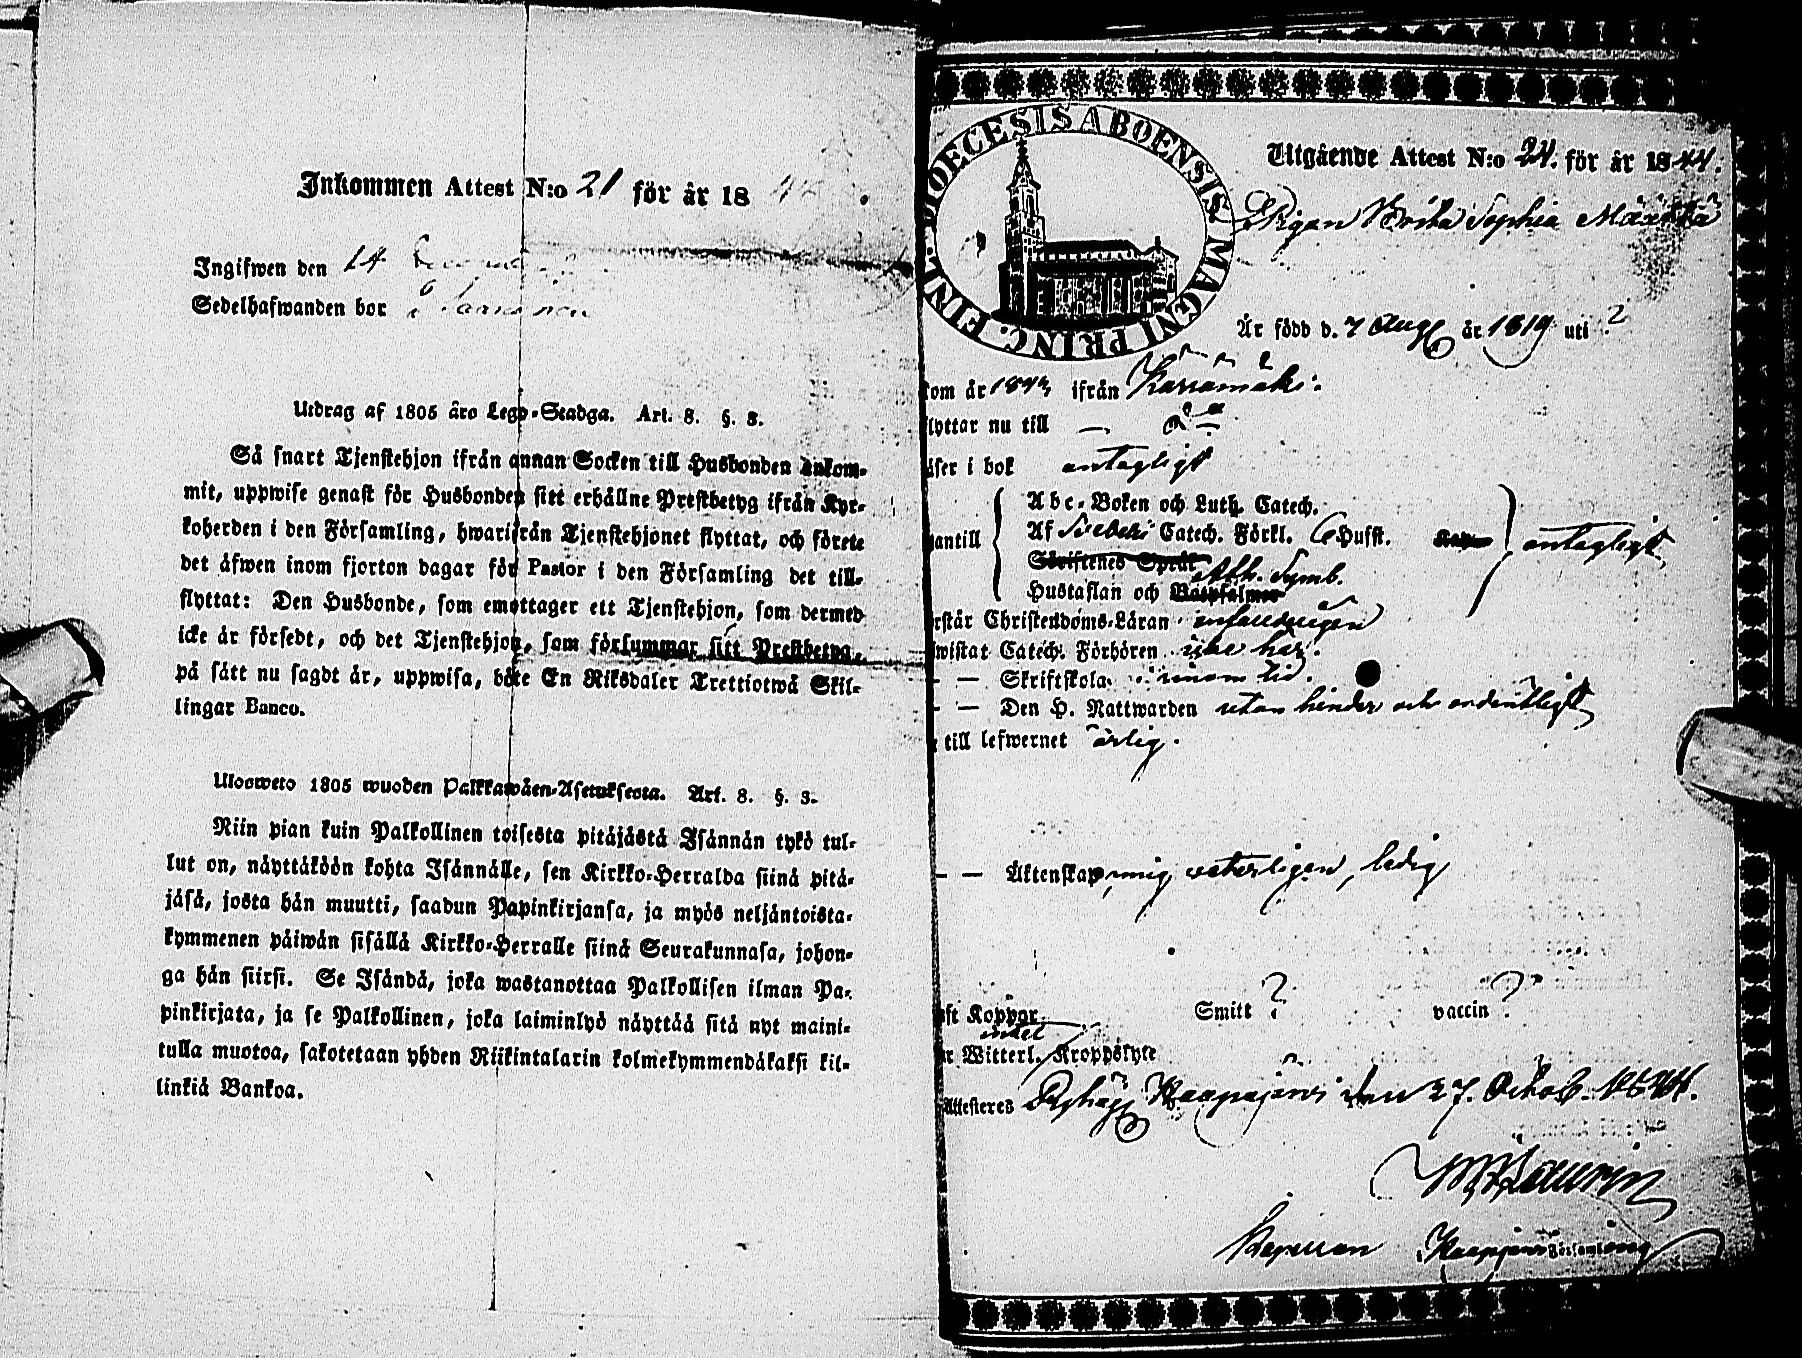 Inkommen Attest N:o 21 för år 18
Ingifwen den 14
Sedelhafwanden bor
Utdrag af 1805 åro Lego-Stadga. Art. 8. §. 3.
Så snart Tjenstehjon ifrån annan Socken till Husbonden ankom-
mit, uppwise genast för Husbonden sitt erhållne Prestbetyg ifrån Kyr-
koherden i den Församling, hwarifrån Tjenstehjonet flyttat, och förete
det äfwen inom fjorton dagar för Pastor i den Församling det till-
flyttat: Den Husbonde, som emottager ett Tjenstehjon, som dermed
icke är försedt, och det Tjenstehjon, som försummar sitt Prestbetyg,
på sätt nu sagdt är, uppwisa, böte En Riksdaler Trettiotwå Skil-
lingar Banco.
Ulosweto 1805 wuoden Palkkawäen-Asetuksesta. Art. 8. §. 3.
Niin pian kuin Palkollinen toisesta pitäjästä Isännän tykö tul-
lut on, näyttäköön kohta Isännälle, sen Kirkko-Herralda siinä pitä-
jäsä, josta hän muutti, saadun Papinkirjansa, ja myös neljäntoista-
kymmenen päiwän sisällä Kirkko-Herralle siinä Seurakunnasa, johon-
ga hän siirsi. Se Isändä, joka wastanottaa Palkollisen ilman Pa-
pinkirjata, ja se Palkollinen, joka laiminlyö näyttää sitä nyt maini-
tulla muotoa, sakotetaan yhden Riikintalarin kolmekymmendäkaksi kil-
linkiä Bankoa.
DIOECESIS ABOENSIS MAGNI PRINC. FINL.
Utgående Attest N:o 24. för år 1844.
Pigan Brita Sophia
Är född d. 7 Aug år 1819 uti ?
kom år 1843 ifrån Karramäki.
flyttar nu till —
äser i bok antagligt
antill
Abc-Boken och Luth. Catech.
Af Svebelii Catech. Förkl. 6 Hufst. antagligt
Skriftenes Språk Ath. Symb.
Hustaflan och Botpsalmer
rstår Christendoms-Läran
wistat Catech. Förhören här.
— — Skriftskola. inom tid.
— — Den H. Nattwarden utan hinder och ordentligt
till lefwernet ärlig.
— — Äktenskap, mig veterligen, ledig
ft Koppor Smitt ? vaccin ?
intet
ar Witterl. Kroppslyte
Attesteres den 27. Octob. 1844.
Församling